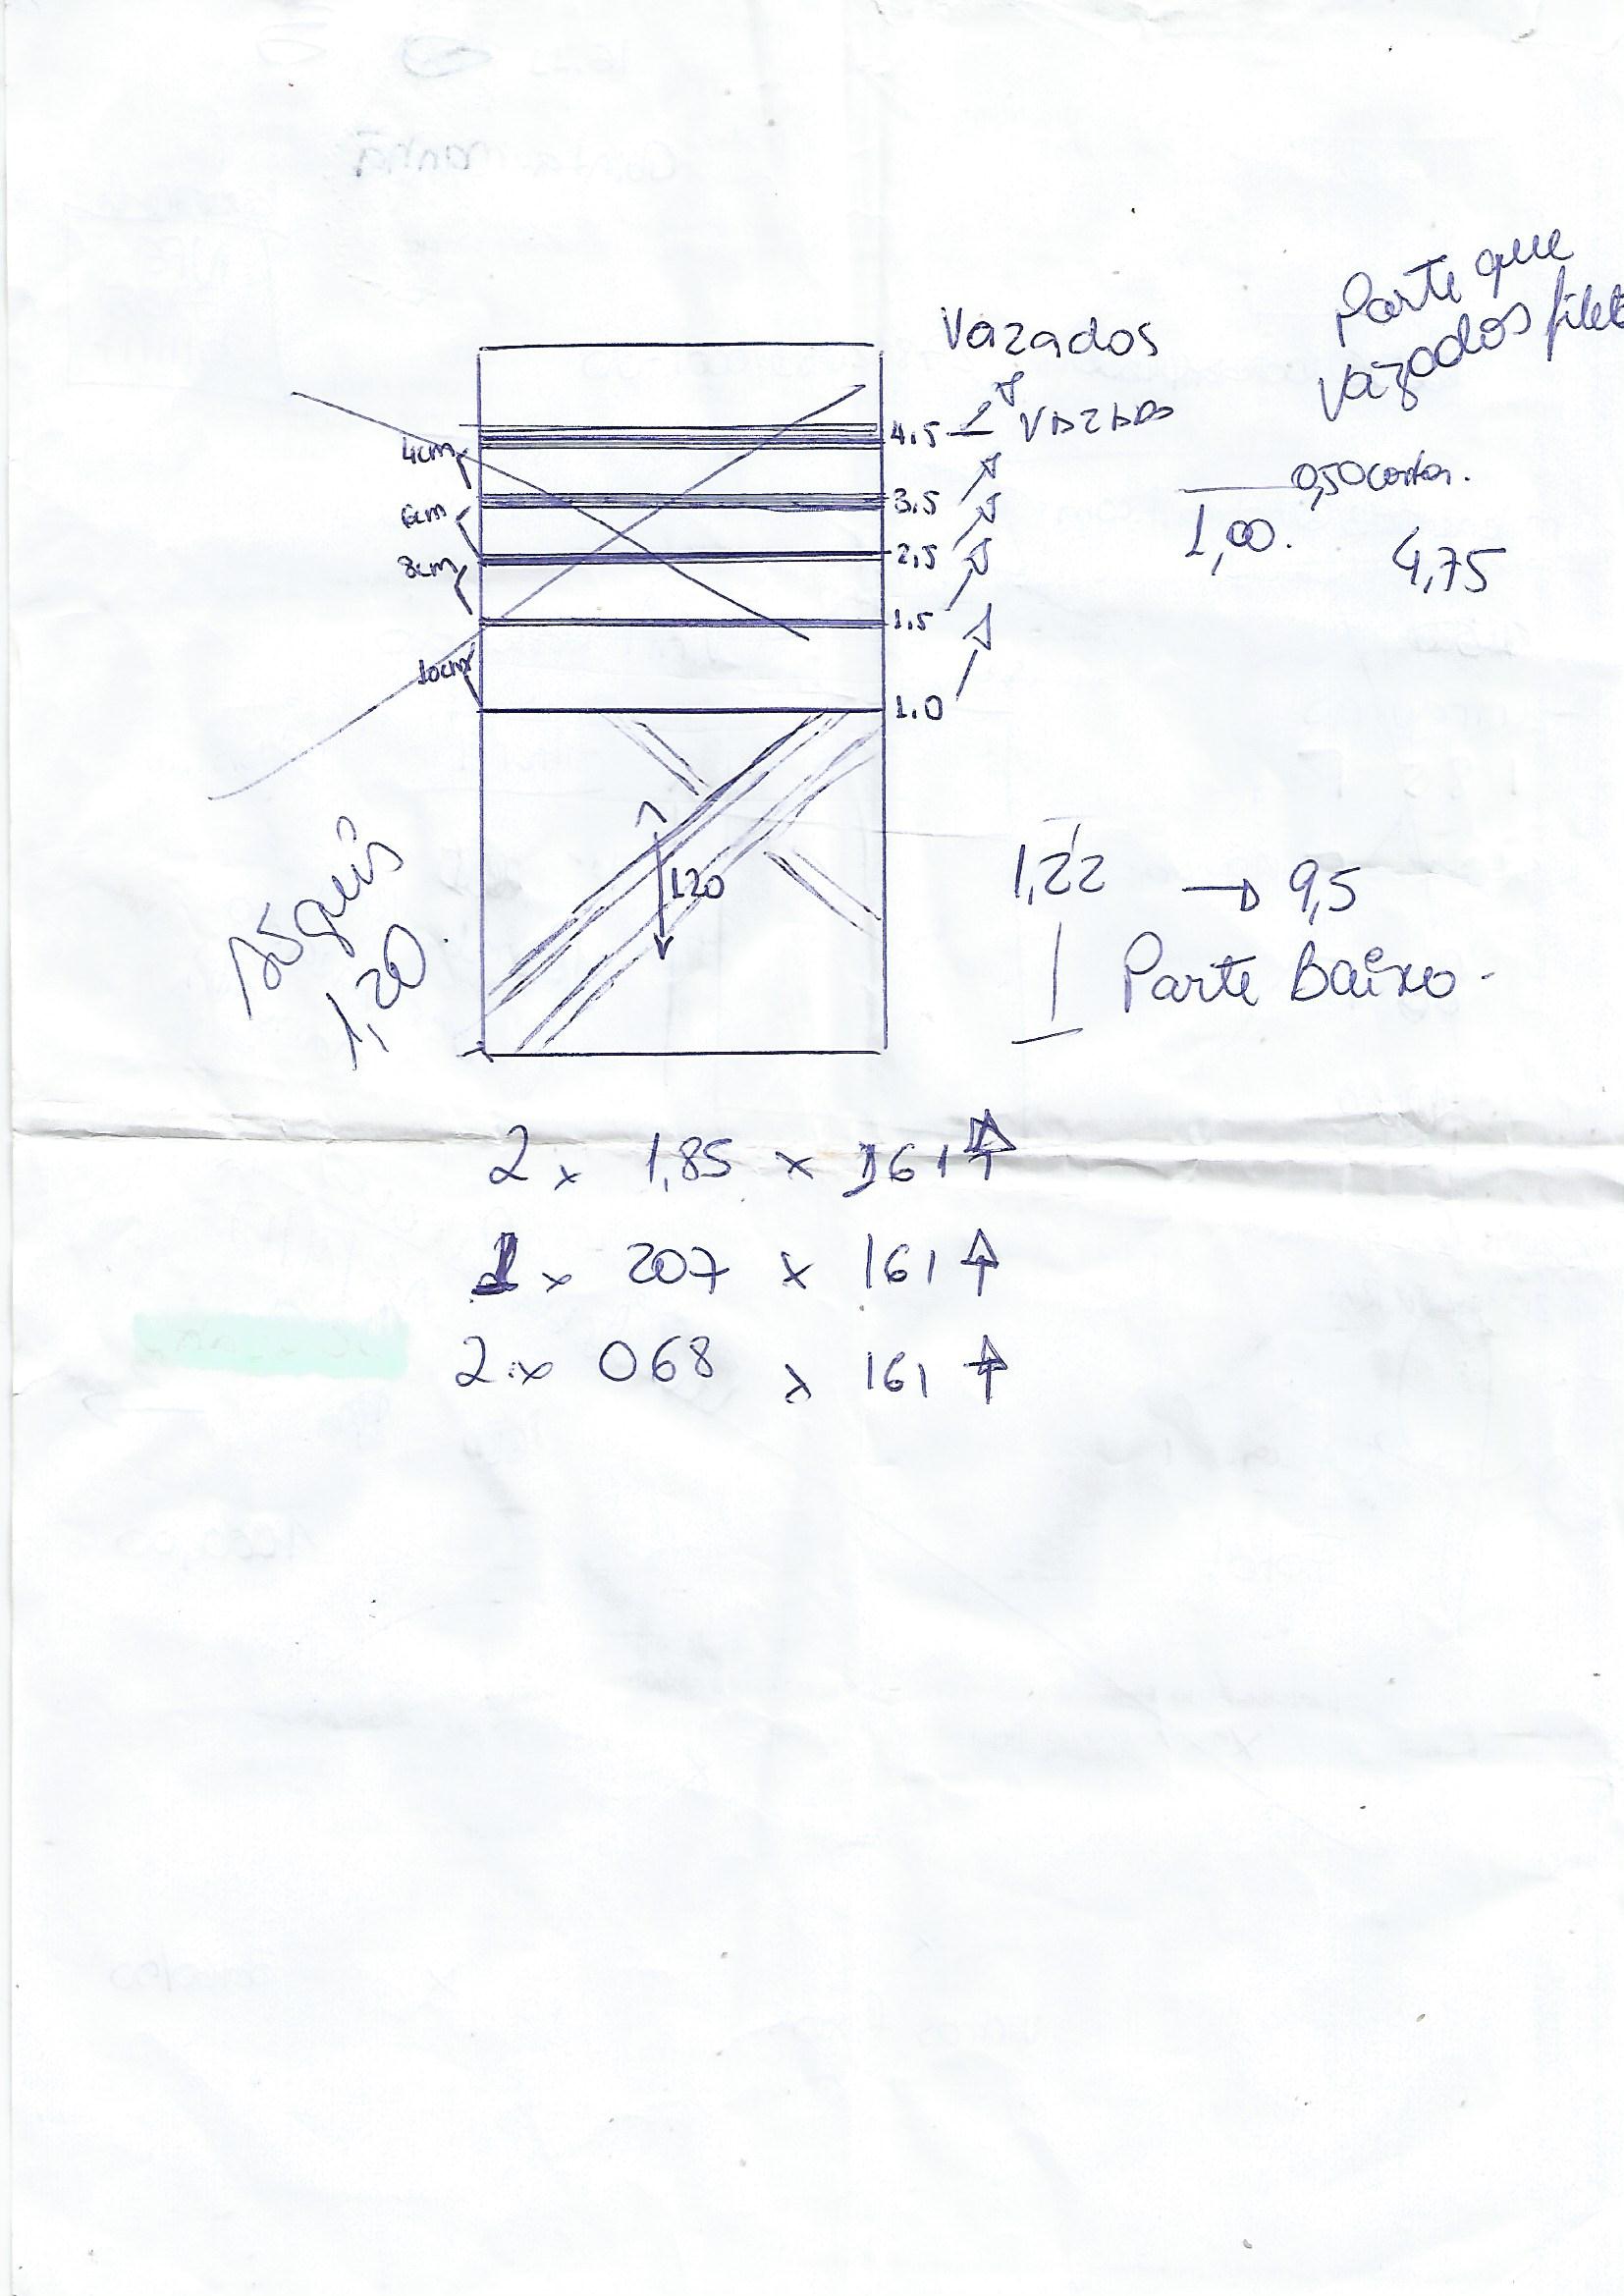 Vazados
Parte que
vazados
4.5
VAZADO
4cm
0,50
3.5
6cm
1,00.
4,75
2,5
8cm
1.5
10cm
1.0
120
Só quis
1,20
1,22 → 9,5
Parte Baixo.
2 x 1,85 x 161 ↑
1 x 207 x 161 ↑
2 x 068 x 161 ↑